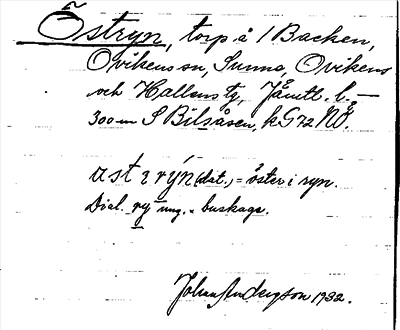 Östryn, torp å 1 Backen,
Ovikens sn, Sunne, Ovikens
och Hallens tg, Jämtl. l. –
300 m S Bilsåsen, k G 72 NO.
öster i ryn.
Dial. ry ung. = buskage.
Johan Anderzson 1932.